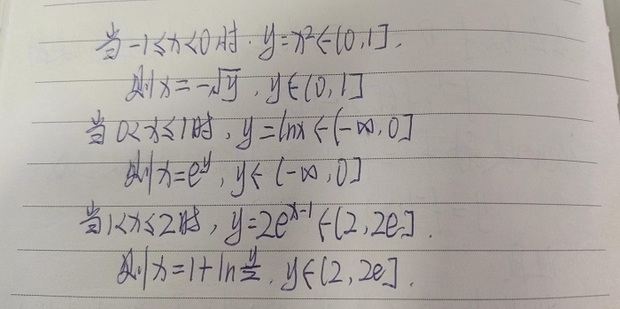 当-1≤x<0时. y=x²∈(0,1].
则x=-√y, y∈(0,1]
当0<x≤1时, y=lnx∈(-∞,0]
则x=e^y, y∈(-∞,0]
当1<x≤2时, y=2e^{x-1}∈(2,2e].
则x=1+ln y/2, y∈(2,2e].